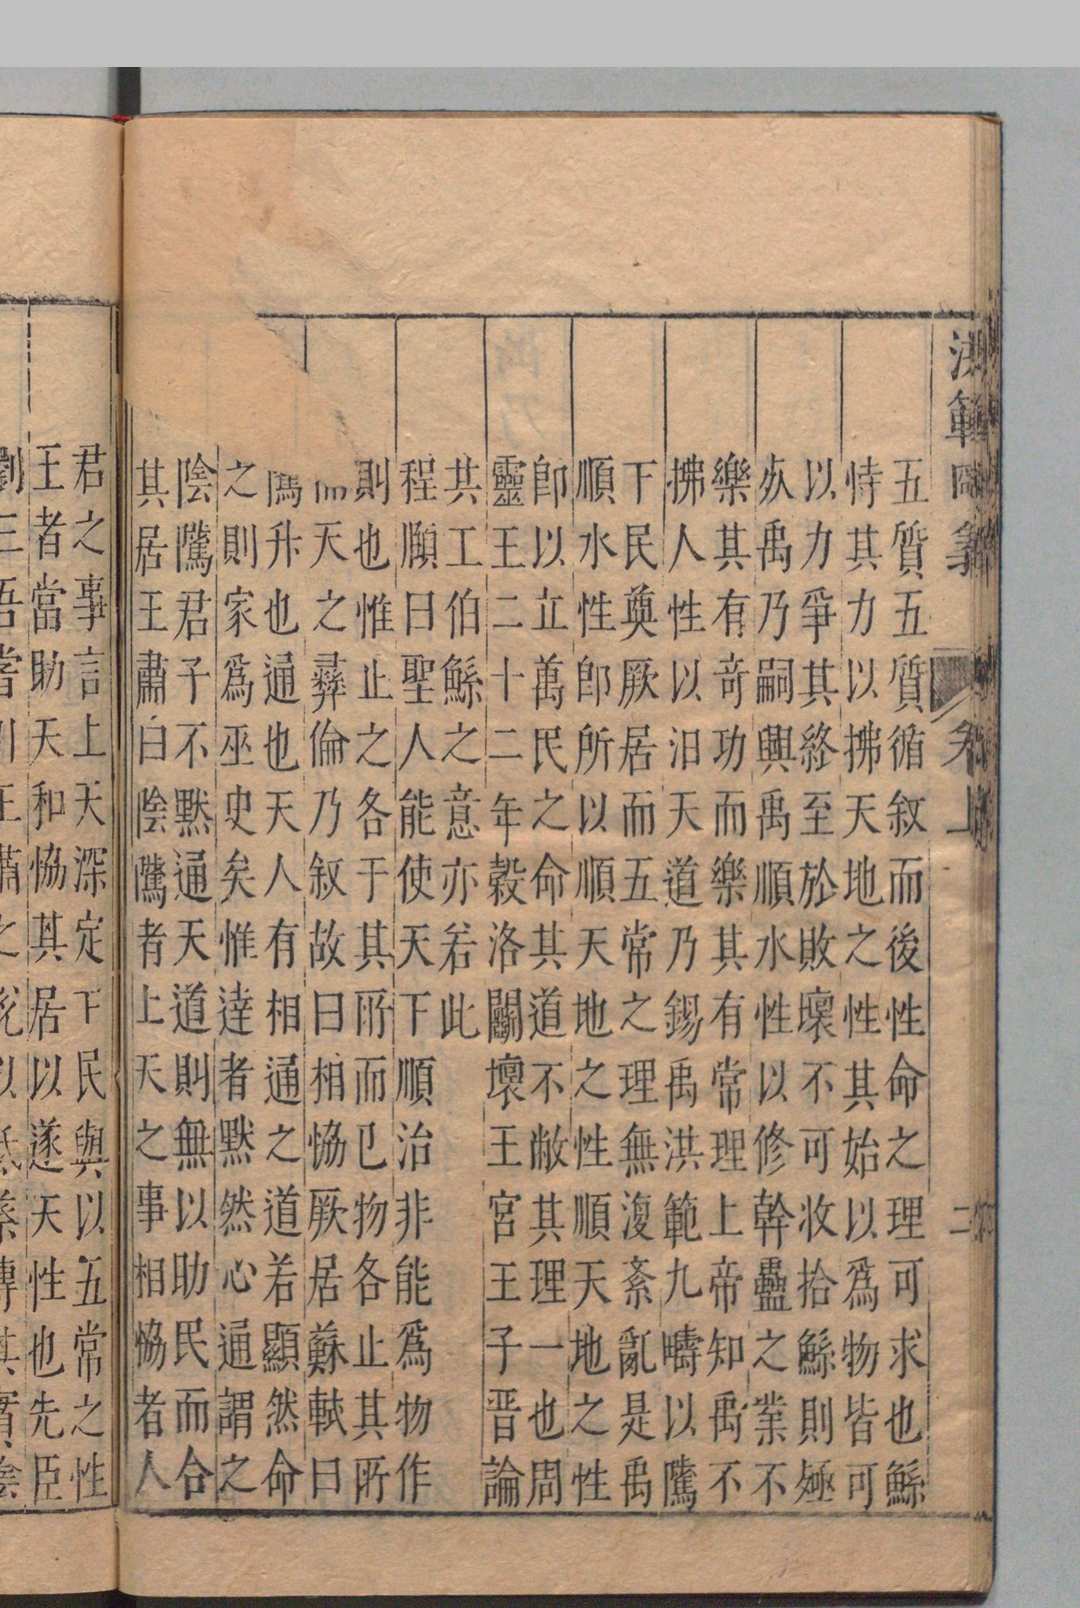 洪範圖
卷上
二
五質五質循叙而後性命之理可求也鯀
恃其力以拂天地之性其始以爲物皆可
以力爭其終至於敗壞不可收拾鯀則殛
灰禹乃嗣興禹順水性以修幹蠱之業不
樂其有奇功而樂其有常理上帝知禹不
拂人性以汩天道乃錫禹洪範九疇以隲
下民奠厥居而五常之理無復紊亂是禹
順水性卽所以順天地之性順天地之性
卽以立萬民之命其道不敝其理一也周
靈王二十二年穀洛鬬壞王宮王子晋論
共工伯鯀之意亦若此
程願曰聖人能使天下順治非能爲物作
則也惟止之各于其所而已物各止其所
而天之彞倫乃叙故曰相恊厥居蘇軾曰
隲升也通也天人有相通之道若顯然命
之則家爲巫史矣惟逹者黙然心通謂之
陰隲君子不黙通天道則無以助民而合
其居王肅曰陰隲者上天之事相恊者人
君之事言上天深定下民與以五常之性
王者當助天和恊其居以遂天性也先臣